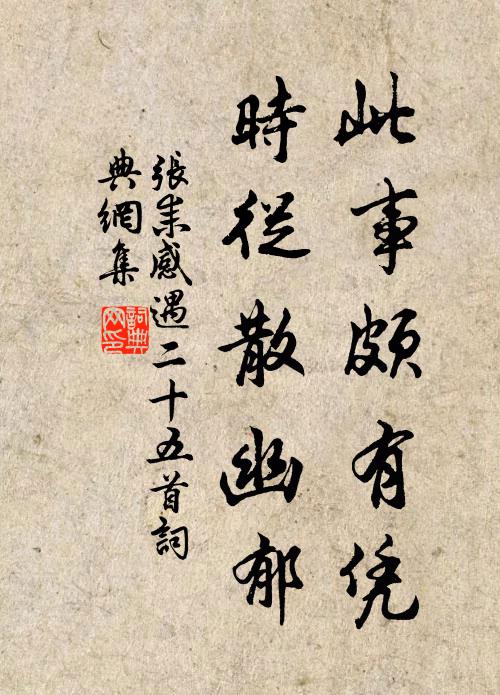 此事頗有凭
時從散幽郁
張耒感遇二十五首詞
典網集
詞典网印